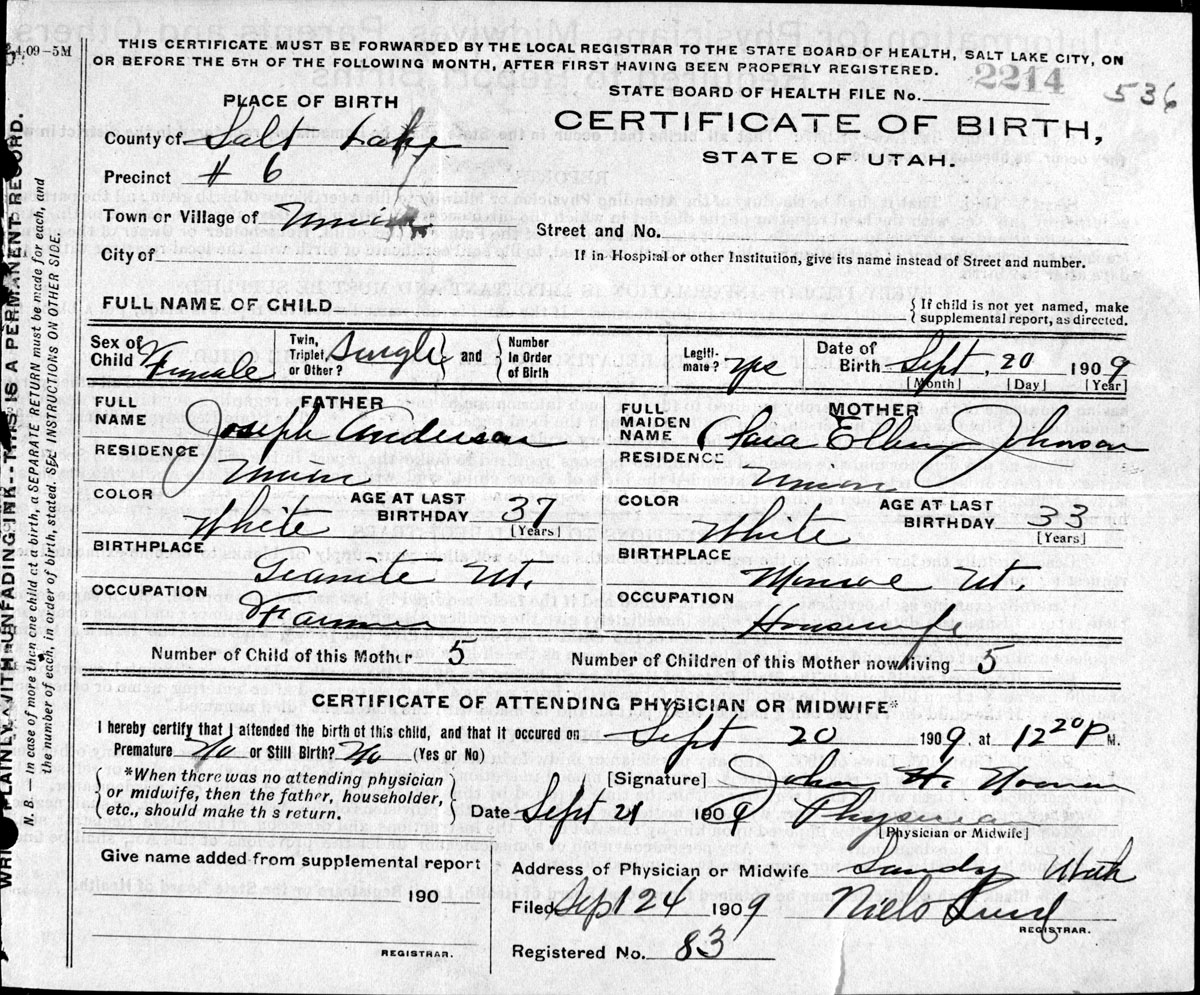 4-09-5M
THIS CERTIFICATE MUST BE FORWARDED BY THE LOCAL REGISTRAR TO THE STATE BOARD OF HEALTH, SALT LAKE CITY, ON
OR BEFORE THE 5TH OF THE FOLLOWING MONTH, AFTER FIRST HAVING BEEN PROPERLY REGISTERED.
STATE BOARD OF HEALTH FILE No. 2214 536
PLACE OF BIRTH
CERTIFICATE OF BIRTH,
STATE OF UTAH.
County of Salt Lake
Precinct # 6
Town or Village of Union
Street and No.
City of
If in Hospital or other Institution, give its name instead of Street and number.
FULL NAME OF CHILD
{If child is not yet named, make
supplemental report, as directed.
Sex of Child Female
Twin, Triplet, or Other? Single } and { Number in Order of Birth
Legitimate? yes
Date of Birth Sept 20 1909
[Month] [Day] [Year]
FATHER
FULL NAME Joseph Anderson
RESIDENCE Union
COLOR White
AGE AT LAST BIRTHDAY 37
[Years]
BIRTHPLACE Granite Ut.
OCCUPATION Farmer
MOTHER
FULL MAIDEN NAME Sara Ellen Johnson
RESIDENCE Union
COLOR White
AGE AT LAST BIRTHDAY 33
[Years]
BIRTHPLACE Monroe Ut
OCCUPATION Housewife
Number of Child of this Mother 5
Number of Children of this Mother now living 5
CERTIFICATE OF ATTENDING PHYSICIAN OR MIDWIFE*
I hereby certify that I attended the birth of this child, and that it occured on Sept 20 1909, at 12 20 P M.
Premature No or Still Birth? No (Yes or No)
{ *When there was no attending physician
or midwife, then the father, householder,
etc., should make this return. }
[Signature] John H.
Date Sept 21 1909 Physician
[Physician or Midwife]
Give name added from supplemental report
190
REGISTRAR.
Address of Physician or Midwife Sandy Utah
Filed Sept 24 1909 Niels Lund
REGISTRAR.
Registered No. 83
WRITE PLAINLY WITH UNFADING INK--THIS IS A PERMANENT RECORD.
N. B. — In case of more than one child at a birth, a SEPARATE RETURN must be made for each, and
the number of each, in order of birth, stated. SEE INSTRUCTIONS ON OTHER SIDE.